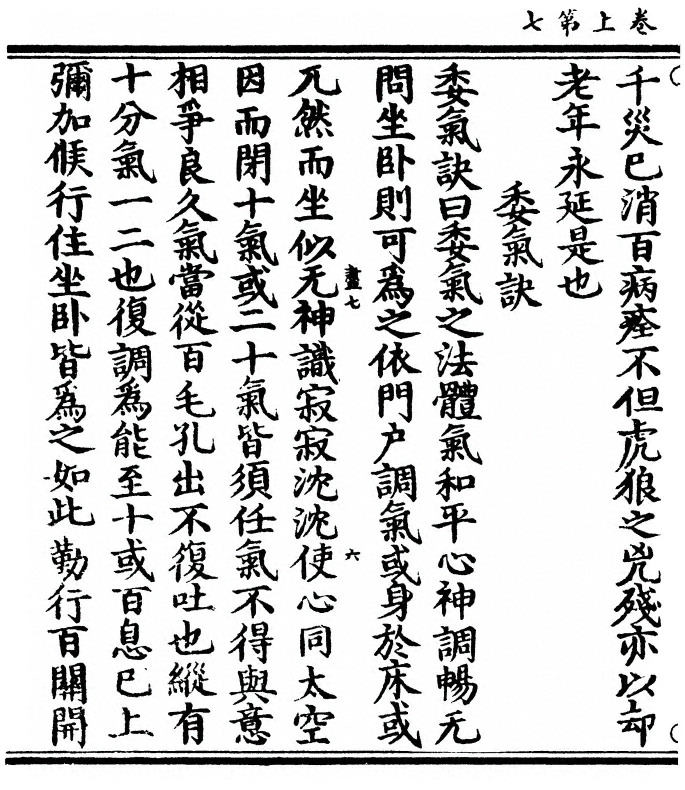 卷上第七
千災已消百病痊不但虎狼之兇殘亦以却
老年永延是也
委氣訣
委氣訣曰委氣之法體氣和平心神調暢无
問坐卧則可為之依門户調氣或身於床或
兀然而坐似无神識寂寂沈沈使心同太空
盡七
六
因而閉十氣或二十氣皆須任氣不得與意
相爭良久氣當從百毛孔出不復吐也縱有
十分氣一二也復調為能至十或百息已上
彌加候行住坐卧皆為之如此勤行百關開